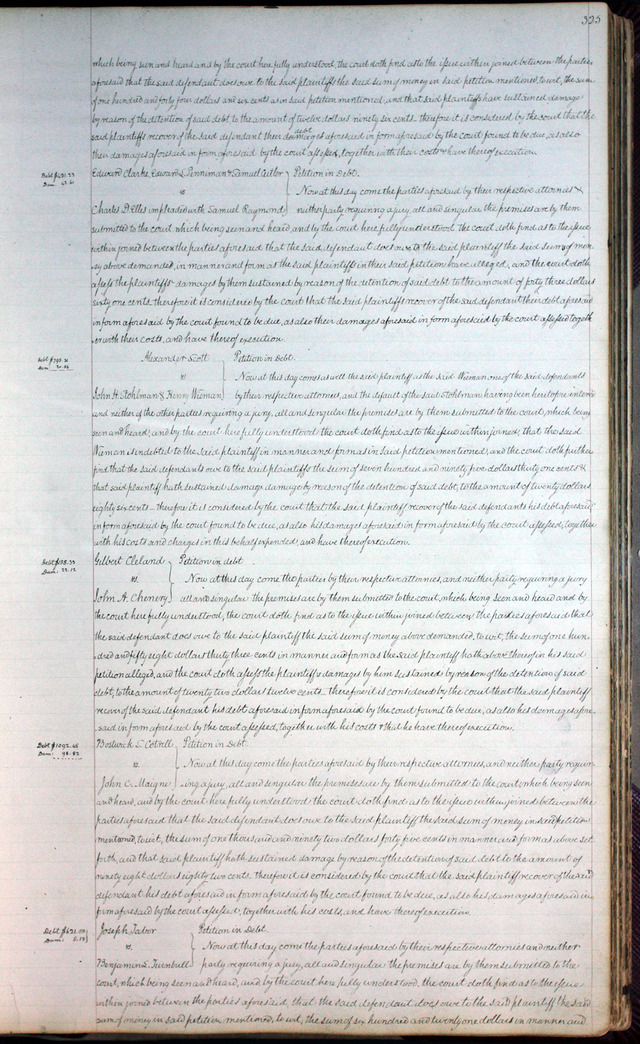 325
which being seen and heard and by the court here fully understood, the court doth find as to the issue within joined between the parties
aforesaid that the said defendant does owe to the said plaintiffs the said sum of money in said petition mentioned, to wit, the sum
of one hundred and forty four dollars and six cents as in said petition mentioned, and that said plaintiffs have sustained damage
by reason of the detention of said debt to the amount of twelve dollars ninety six cents. therefore it is considered by the court that the
said plaintiffs recover of the said defendant their debt aforesaid in form aforesaid by the court found to be due, as also
their damages aforesaid in form aforesaid by the court assessed, together with their costs & have thereof execution.
Edward Clarke Edward L. Penniman & Samuel Petition in Debt.
vs Now at this day come the parties aforesaid by their respective attornies &
Charles D. Ellis impleaded with Samuel Raymond neither party requiring a jury, all and singular the premises are by them
submitted to the court which being seen and heard, and by the court here fully understood. the court doth find as to the issue
within joined between the parties aforesaid that the said defendant does owe to the said plaintiff the said sum of mon
ey above demanded, in manner and form as the said plaintiffs in their said petition have alleged, and the court doth
assess the plaintiffs damages by them sustained by reason of the detention of said debt to the amount of forty three dollars
sixty one cents. therefore it is considered by the court that the said plaintiffs recover of the said defendant their debt aforesaid
in form aforesaid by the court found to be due, as also their damages aforesaid in form aforesaid by the court assessed togeth
er with their costs, and have thereof execution.
Debt $795.31
Dam: 20.86
Alexander Scott Petition in Debt.
vs Now at this day comes as well the said plaintiff as the said Wieman one of the said defendants
John H. Stohlman & Henry Wieman by their respective attornies, and the default of the said Stohlman having been heretofore
and neither of the other parties requiring a jury, all and singular the premises are by them submitted to the court, which being
seen and heard, and by the court here fully understood the court doth find as to the issue within joined, that the said
Wieman is indebted to the said plaintiff in manner and form as in said petition mentioned, and the court doth further
find that the said defendants owe to the said plaintiffs the sum of seven hundred and ninety five dollars thirty one cents &
that said plaintiff hath sustained damage damage by reason of the detention of said debt, to the amount of twenty dollars
eighty six cents - therefore it is considered by the court that the said plaintiff recover of the said defendants his debt aforesaid
in form aforesaid by the court found to be due, as also his damages aforesaid in form aforesaid by the court assessed, together
with his costs and charges in this behalf expended, and have thereof execution.
Debt $158.33
Dam: 22.12
Gilbert Cleland Petition in debt.
vs. Now at this day come the parties by their respective attornies, and neither party requiring a jury
John A. Chenery all and singular the premises are by them submitted to the court, which being seen and heard and by
the court here fully understood, the court doth find as to the issue within joined between the parties aforesaid that
the said defendant does owe to the said plaintiff the said sum of money above demanded, to wit, the sum of one hun
dred and fifty eight dollars thirty three cents in manner and form as the said plaintiff hath above thereof in his said
petition alleged, and the court doth assess the plaintiffs damages by him sustained by reason of the detention of said
debt, to the amount of twenty two dollars twelve cents. therefore it is considered by the court that the said plaintiff
recover of the said defendant his debt aforesaid in form aforesaid by the court found to be due, as also his damages afore
said in form aforesaid by the court assessed, together with his costs & that he have thereof execution.
Debt $1092.45
Dam: 98.82
Bostwick S. Cotrell Petition in Debt.
vs. Now at this day come the parties aforesaid by their respective attornies, and neither party requir
John C. Maigne ing a jury, all and singular the premises are by them submitted to the court, which being seen
and heard, and by the court here fully understood the court doth find as to the issue within joined between the
parties aforesaid that the said defendant does owe to the said plaintiff the said sum of money in said petition
mentioned, to wit, the sum of one thousand and ninety two dollars forty five cents in manner and form as above set
forth, and that said plaintiff hath sustained damage by reason of the detention of said debt to the amount of
ninety eight dollars eighty two cents. therefore it is considered by the court that the said plaintiff recover of the said
defendant his debt aforesaid in form aforesaid by the court found to be due, as also his damages aforesaid in
form aforesaid by the court assessed, together with his costs, and have thereof execution.
Joseph Tabor Petition in Debt.
vs. Now at this day come the parties aforesaid by their respective attornies and neither
Benjamin L. Turnbull party requiring a jury, all and singular the premises are by them submitted to the
court, which being seen and heard, and by the court here fully understood, the court doth find as to the issue
within joined between the parties aforesaid, that the said defendant does owe to the said plaintiff the said
sum of money in said petition mentioned, to wit, the sum of six hundred and twenty one dollars in manner and